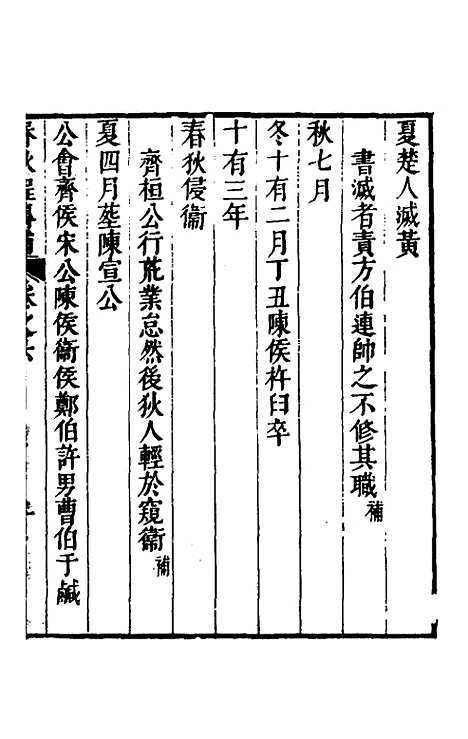 夏楚人滅黃
書滅者責方伯連帥之不修其職補
秋七月
冬十有二月丁丑陳侯杵臼卒
十有三年
春狄侵衞
齊桓公行荒業怠然後狄人輕於窺衞補
夏四月塟陳宣公
公會齊侯宋公陳侯衞侯鄭伯許男曹伯于鹹
春秋程傳補 卷之六